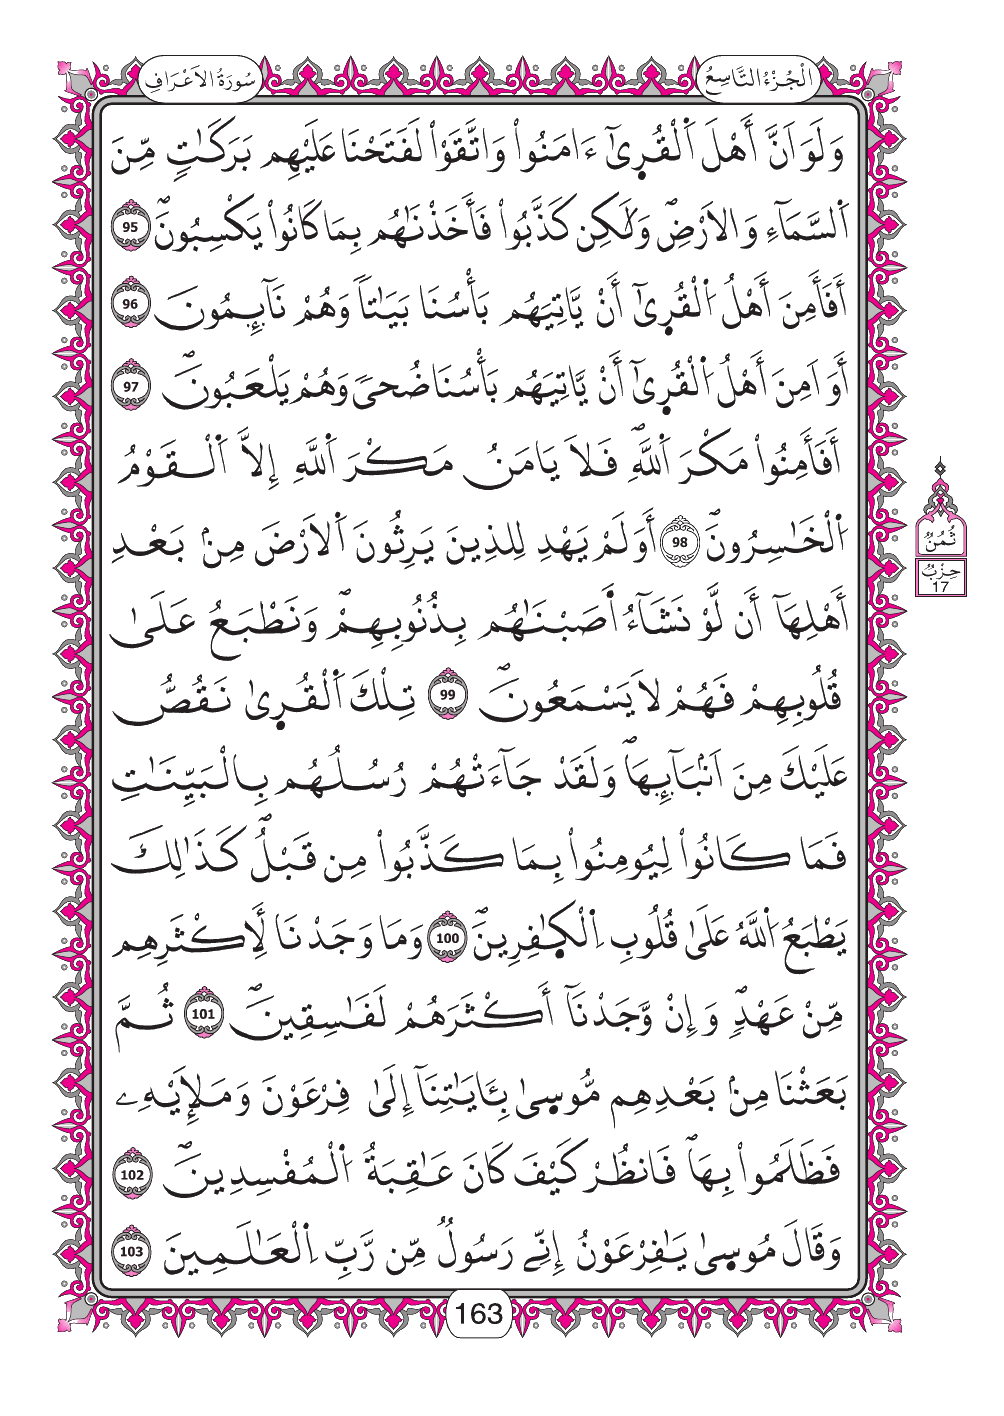 سُورَةُ الاَعْرَافِ
الْجُزْءُ التَّاسِعُ
وَلَوَ اَنَّ أَهْلَ اَ۬لْقُر۪ىٰٓ ءَامَنُواْ وَاتَّقَوْاْ لَفَتَحْنَا عَلَيْهِم بَرَكَٰتٖ مِّنَ
اَ۬لسَّمَآءِ وَالَارْضِۖ وَلَٰكِن كَذَّبُواْ فَأَخَذْنَٰهُم بِمَا كَانُواْ يَكْسِبُونَۖ 95
أَفَأَمِنَ أَهْلُ اُ۬لْقُر۪ىٰٓ أَنْ يَّاتِيَهُم بَأْسُنَا بَيَٰتاٗ وَهُمْ نَآئِمُونَ 96
أَوَ اَمِنَ أَهْلُ اُ۬لْقُر۪ىٰٓ أَنْ يَّاتِيَهُم بَأْسُنَا ضُحىٗ وَهُمْ يَلْعَبُونَۖ 97
أَفَأَمِنُواْ مَكْرَ اَ۬للَّهِۖ فَلَا يَامَنُ مَكْرَ اَ۬للَّهِ إِلَّا اَ۬لْقَوْمُ
اُ۬لْخَٰسِرُونَۖ 98 أَوَلَمْ يَهْدِ لِلذِينَ يَرِثُونَ اَ۬لَارْضَ مِنۢ بَعْدِ
أَهْلِهَآ أَن لَّوْ نَشَآءُ اَ۬صَبْنَٰهُم بِذُنُوبِهِمْۖ وَنَطْبَعُ عَلَىٰ
قُلُوبِهِمْ فَهُمْ لَا يَسْمَعُونَۖ 99 تِلْكَ اَ۬لْقُر۪ىٰ نَقُصُّ
عَلَيْكَ مِنَ اَنۢبَآئِهَاۖ وَلَقَدْ جَآءَتْهُمْ رُسُلُهُم بِالْبَيِّنَٰتِ
فَمَا كَانُواْ لِيُومِنُواْ بِمَا كَذَّبُواْ مِن قَبْلُۖ كَذَٰلِكَ
يَطْبَعُ اُ۬للَّهُ عَلَىٰ قُلُوبِ اِ۬لْكٰ۪فِرِينَۖ 100 وَمَا وَجَدْنَا لِأَكْثَرِهِم
مِّنْ عَهْدٖۖ وَإِنْ وَّجَدْنَآ أَكْثَرَهُمْ لَفَٰسِقِينَۖ 101 ثُمَّ
بَعَثْنَا مِنۢ بَعْدِهِم مُّوس۪ىٰ بِـَٔايَٰتِنَآ إِلَىٰ فِرْعَوْنَ وَمَلَإِيْهِۦ
فَظَلَمُواْ بِهَاۖ فَانظُرْ كَيْفَ كَانَ عَٰقِبَةُ اُ۬لْمُفْسِدِينَۖ 102
وَقَالَ مُوس۪ىٰ يَٰفِرْعَوْنُ إِنِّے رَسُولٞ مِّن رَّبِّ اِ۬لْعَٰلَمِينَ 103
ثُمُنٌ
حِزْبٌ
17
163